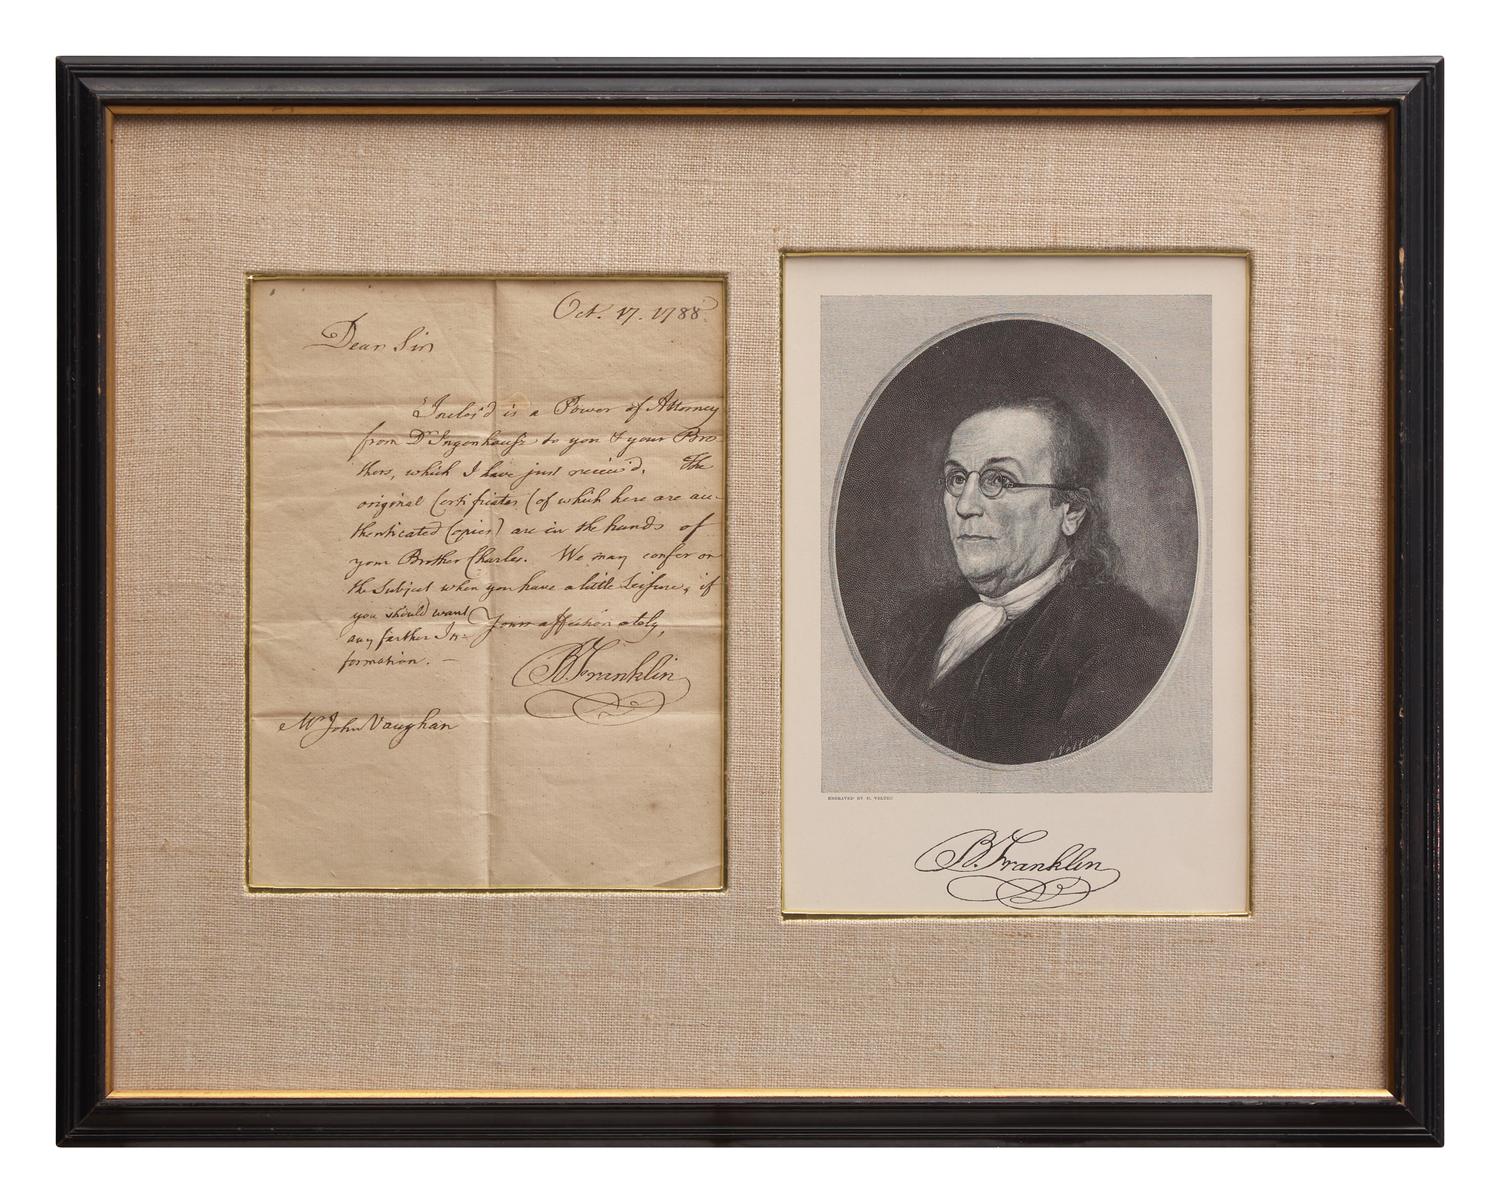 Oct. 17. 1788.
Dear Sir
Inclos'd is a Power of Attorney
from Dr Ingenhausz to you & your Bro
thers, which I have just receiv'd. The
original Certificates (of which here are au-
thenticated Copies) are in the hands of
your Brother Charles. We may confer on
the Subject when you have a little Leisure, if
you should want
any farther In-
formation. —
Yours affectionately,
B. Franklin
Mr John Vaughan
Velten
ENGRAVED BY H. VELTEN
B. Franklin